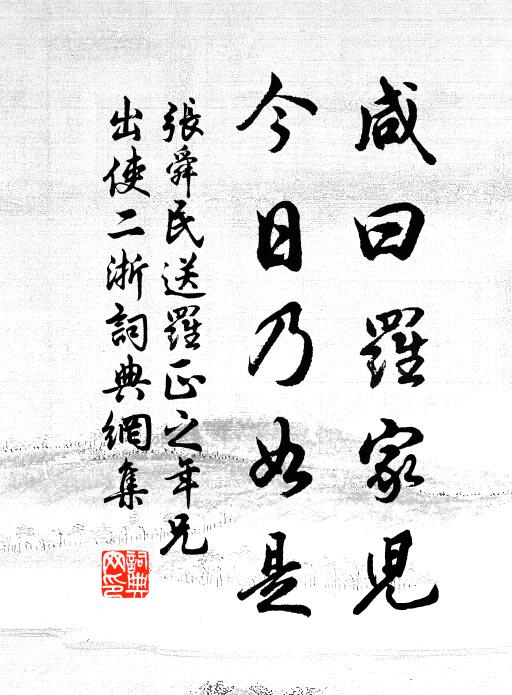 咸曰羅家児
今日乃如是
張舜民送羅正之年兄
出使二浙詞典網集
詞典网印